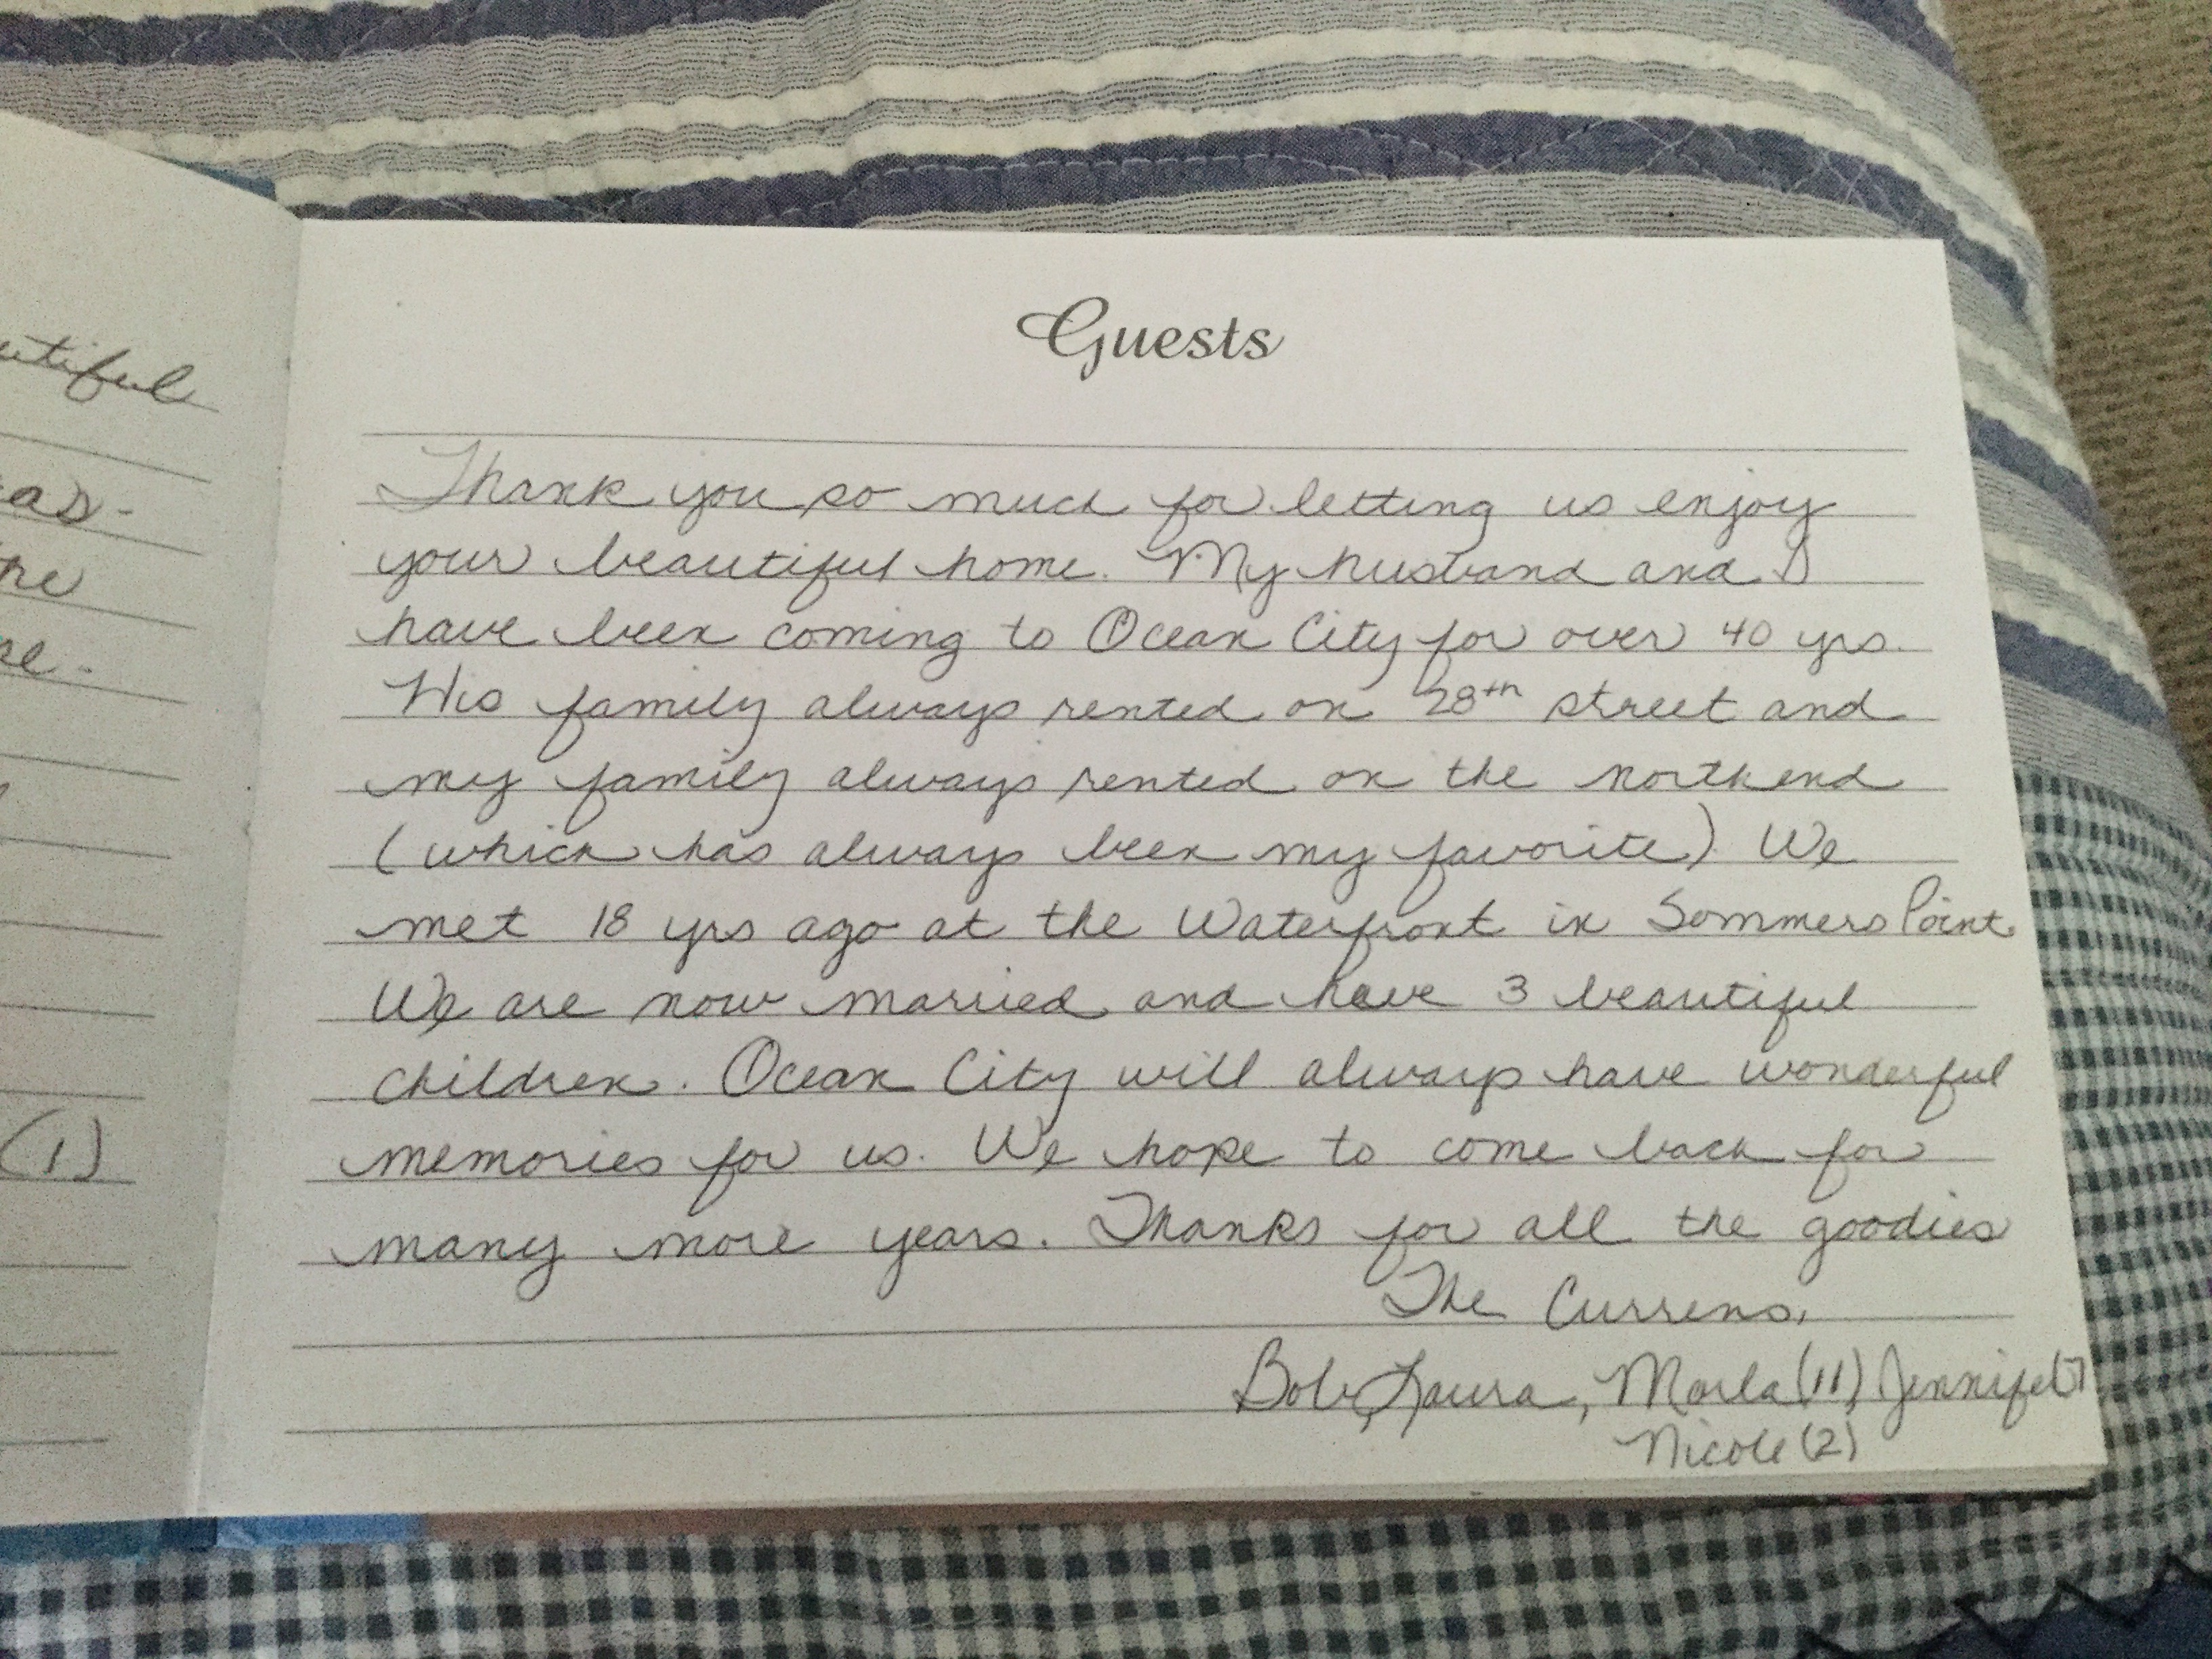 Guests
Thank you so much for letting us enjoy
your beautiful home. My husband and I
have been coming to Ocean City for over 40 yrs.
His family always rented on 28th street and
my family always rented on the north end
(which has always been my favorite) We
met 18 yrs ago at the Waterfront in Sommers Point.
We are now married and have 3 beautiful
children. Ocean City will always have wonderful
memories for us. We hope to come back for
many more years. Thanks for all the goodies
The Currens,
Bob, Laura, Marla (11) Jennifer (7
Nicole (2)
as-
(1)